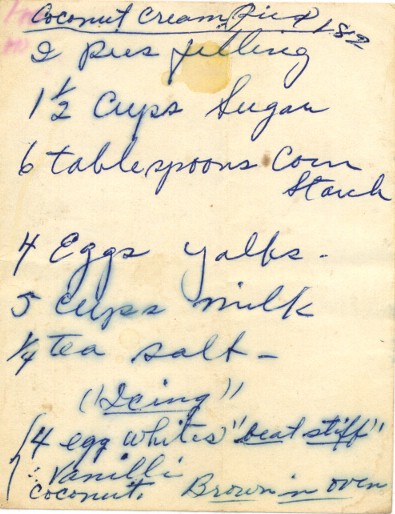 Coconut Cream Pie # 1 & 2
2 Pies filling
1 1/2 Cups Sugar
6 tablespoons Corn
Starch
4 Eggs yalks -
5 cups milk
1/4 tea salt -
"Icing"
4 egg whites "beat stiff"
Vanilli
Coconut. Brown in oven